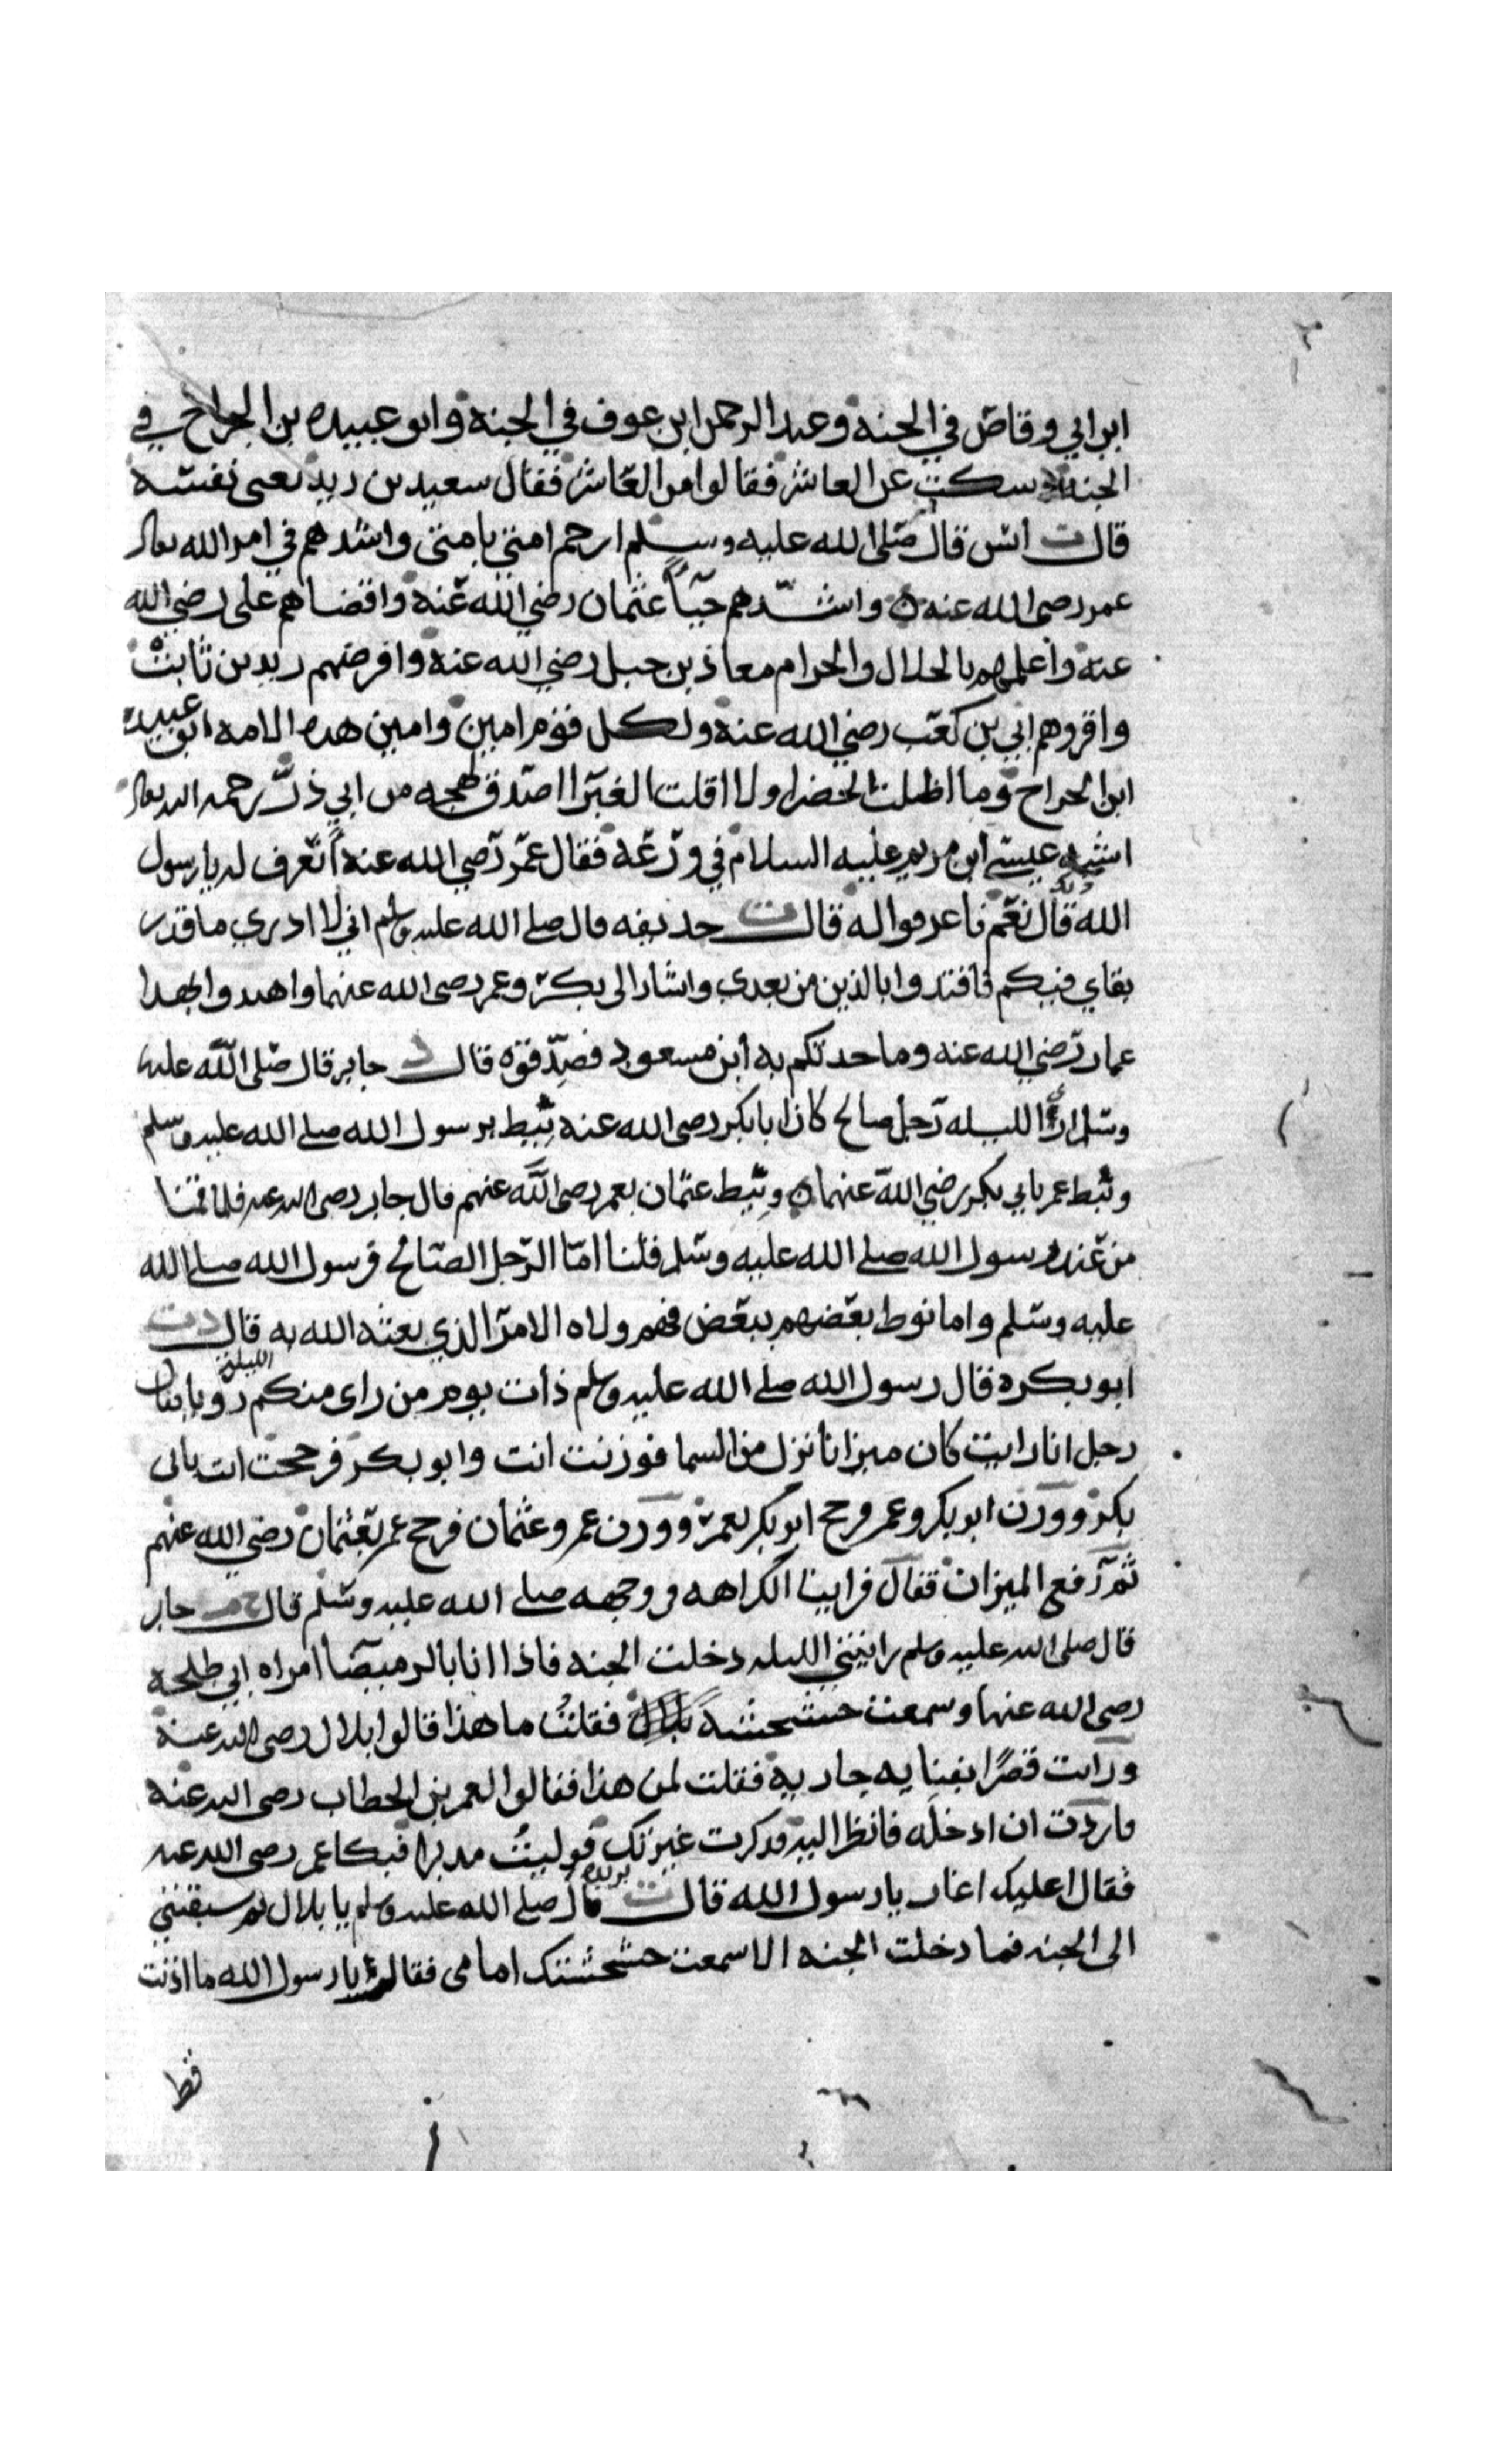 ابن ابي وقاص في الجنة وعبد الرحمن ابن عوف في الجنة وابو عبيده بن الجراح في
الجنة وسكت عن العاشر فقالوا من العاشر فقال سعيد بن زيد يعني نفسه
قال ت انس قال صلى الله عليه وسلم ارحم امتي بامتي واشدهم في امر الله تعالى
عمر رضي الله عنه واشدهم حياً عثمان رضي الله عنه واقضاهم علي رضي الله
عنه واعلمهم بالحلال والحرام معاذ بن جبل رضي الله عنه وافرضهم زيد بن ثابت
واقروهم ابي بن كعب رضي الله عنه ولكل قوم امين وامين هذه الامه ابو عبيدة
ابن الجراح وما اظلت الخضرا ولا اقلت الغبرا اصدق لهجه من ابي ذر رحمه الله تعالى
اشبه عيسى ابن مريم عليه السلام في ورعه فقال عمر رضي الله عنه أنعرف له يا رسول
الله قال نعم فاعرفوا له قال ت حذيفه قال صلى الله عليه وسلم اني لا ادري ما قدر
بقاي فيكم فاقتدوا بالذين من بعدي واشار الى بكر وعمر رضي الله عنهما واهدوا بهدا
عمار رضي الله عنه وما حدثكم به ابن مسعود فصدقوه قال د جابر قال صلى الله عليه
وسلم اري الليله رجل صالح كان ابابكر رضي الله عنه نيط برسول الله صلى الله عليه وسلم
ونيط عمر بابي بكر رضي الله عنهما ونيط عثمان بعمر رضي الله عنهم قال جابر رضي الله عنه فلما قمنا
من عند رسول الله صلى الله عليه وسلم قلنا اما الرجل الصالح فرسول الله صلى الله
عليه وسلم واما نوط بعضهم ببعض فهم ولاه الامر الذي بعثه الله به قال دت
ابو بكره قال رسول الله صلى الله عليه وسلم ذات يوم من راى منكم الليلة رؤيا فقال
رجل انا رايت كان ميزانا نزل من السما فوزنت انت وابو بكر فرجحت انت بابي
بكر ووزن ابو بكر وعمر فرجح ابو بكر بعمر ووزن عمر وعثمان فرجح عمر بعثمان رضي الله عنهم
ثم رفع الميزان فقال فراينا الكراهه في وجهه صلى الله عليه وسلم قال جابر
قال صلى الله عليه وسلم رايتني الليله دخلت الجنه فاذا انا بالرميصا امراه ابي طلحه
رضي الله عنها وسمعت خشخشة فقلت ما هذا قالوا بلال رضي الله عنه
ورايت قصرًا بفنايه جاريه فقلت لمن هذا فقالوا لعمر بن الخطاب رضي الله عنه
فاردت ان ادخله فانظر اليه فذكرت غيرتك فوليت مدبرا فبكا عمر رضي الله عنه
فقال اعليك اغار يا رسول الله قال ت بريده قال صلى الله عليه وسلم يا بلال بم سبقتني
الى الجنه فما دخلت الجنه الا سمعت خشخشتك امامي فقال يا رسول الله ما اذنت
قط